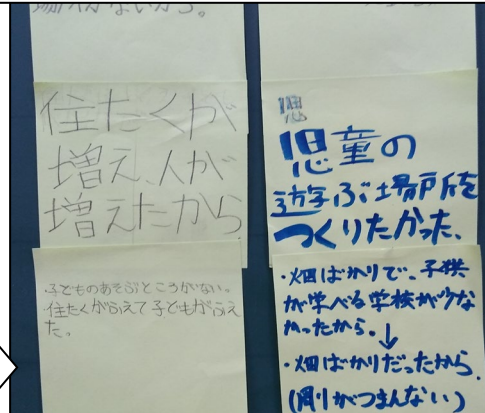 がないから。
住たくが
増え、人が
増えたから
・子どものあそぶところがない。
住たくがふえて子どもがふえ
た。
児童の
遊ぶ場所を
つくりたかった。
・畑ばかりで、子供
が学べる学校が少な
かったから。↓
・畑ばかりだったから
がつまんない)